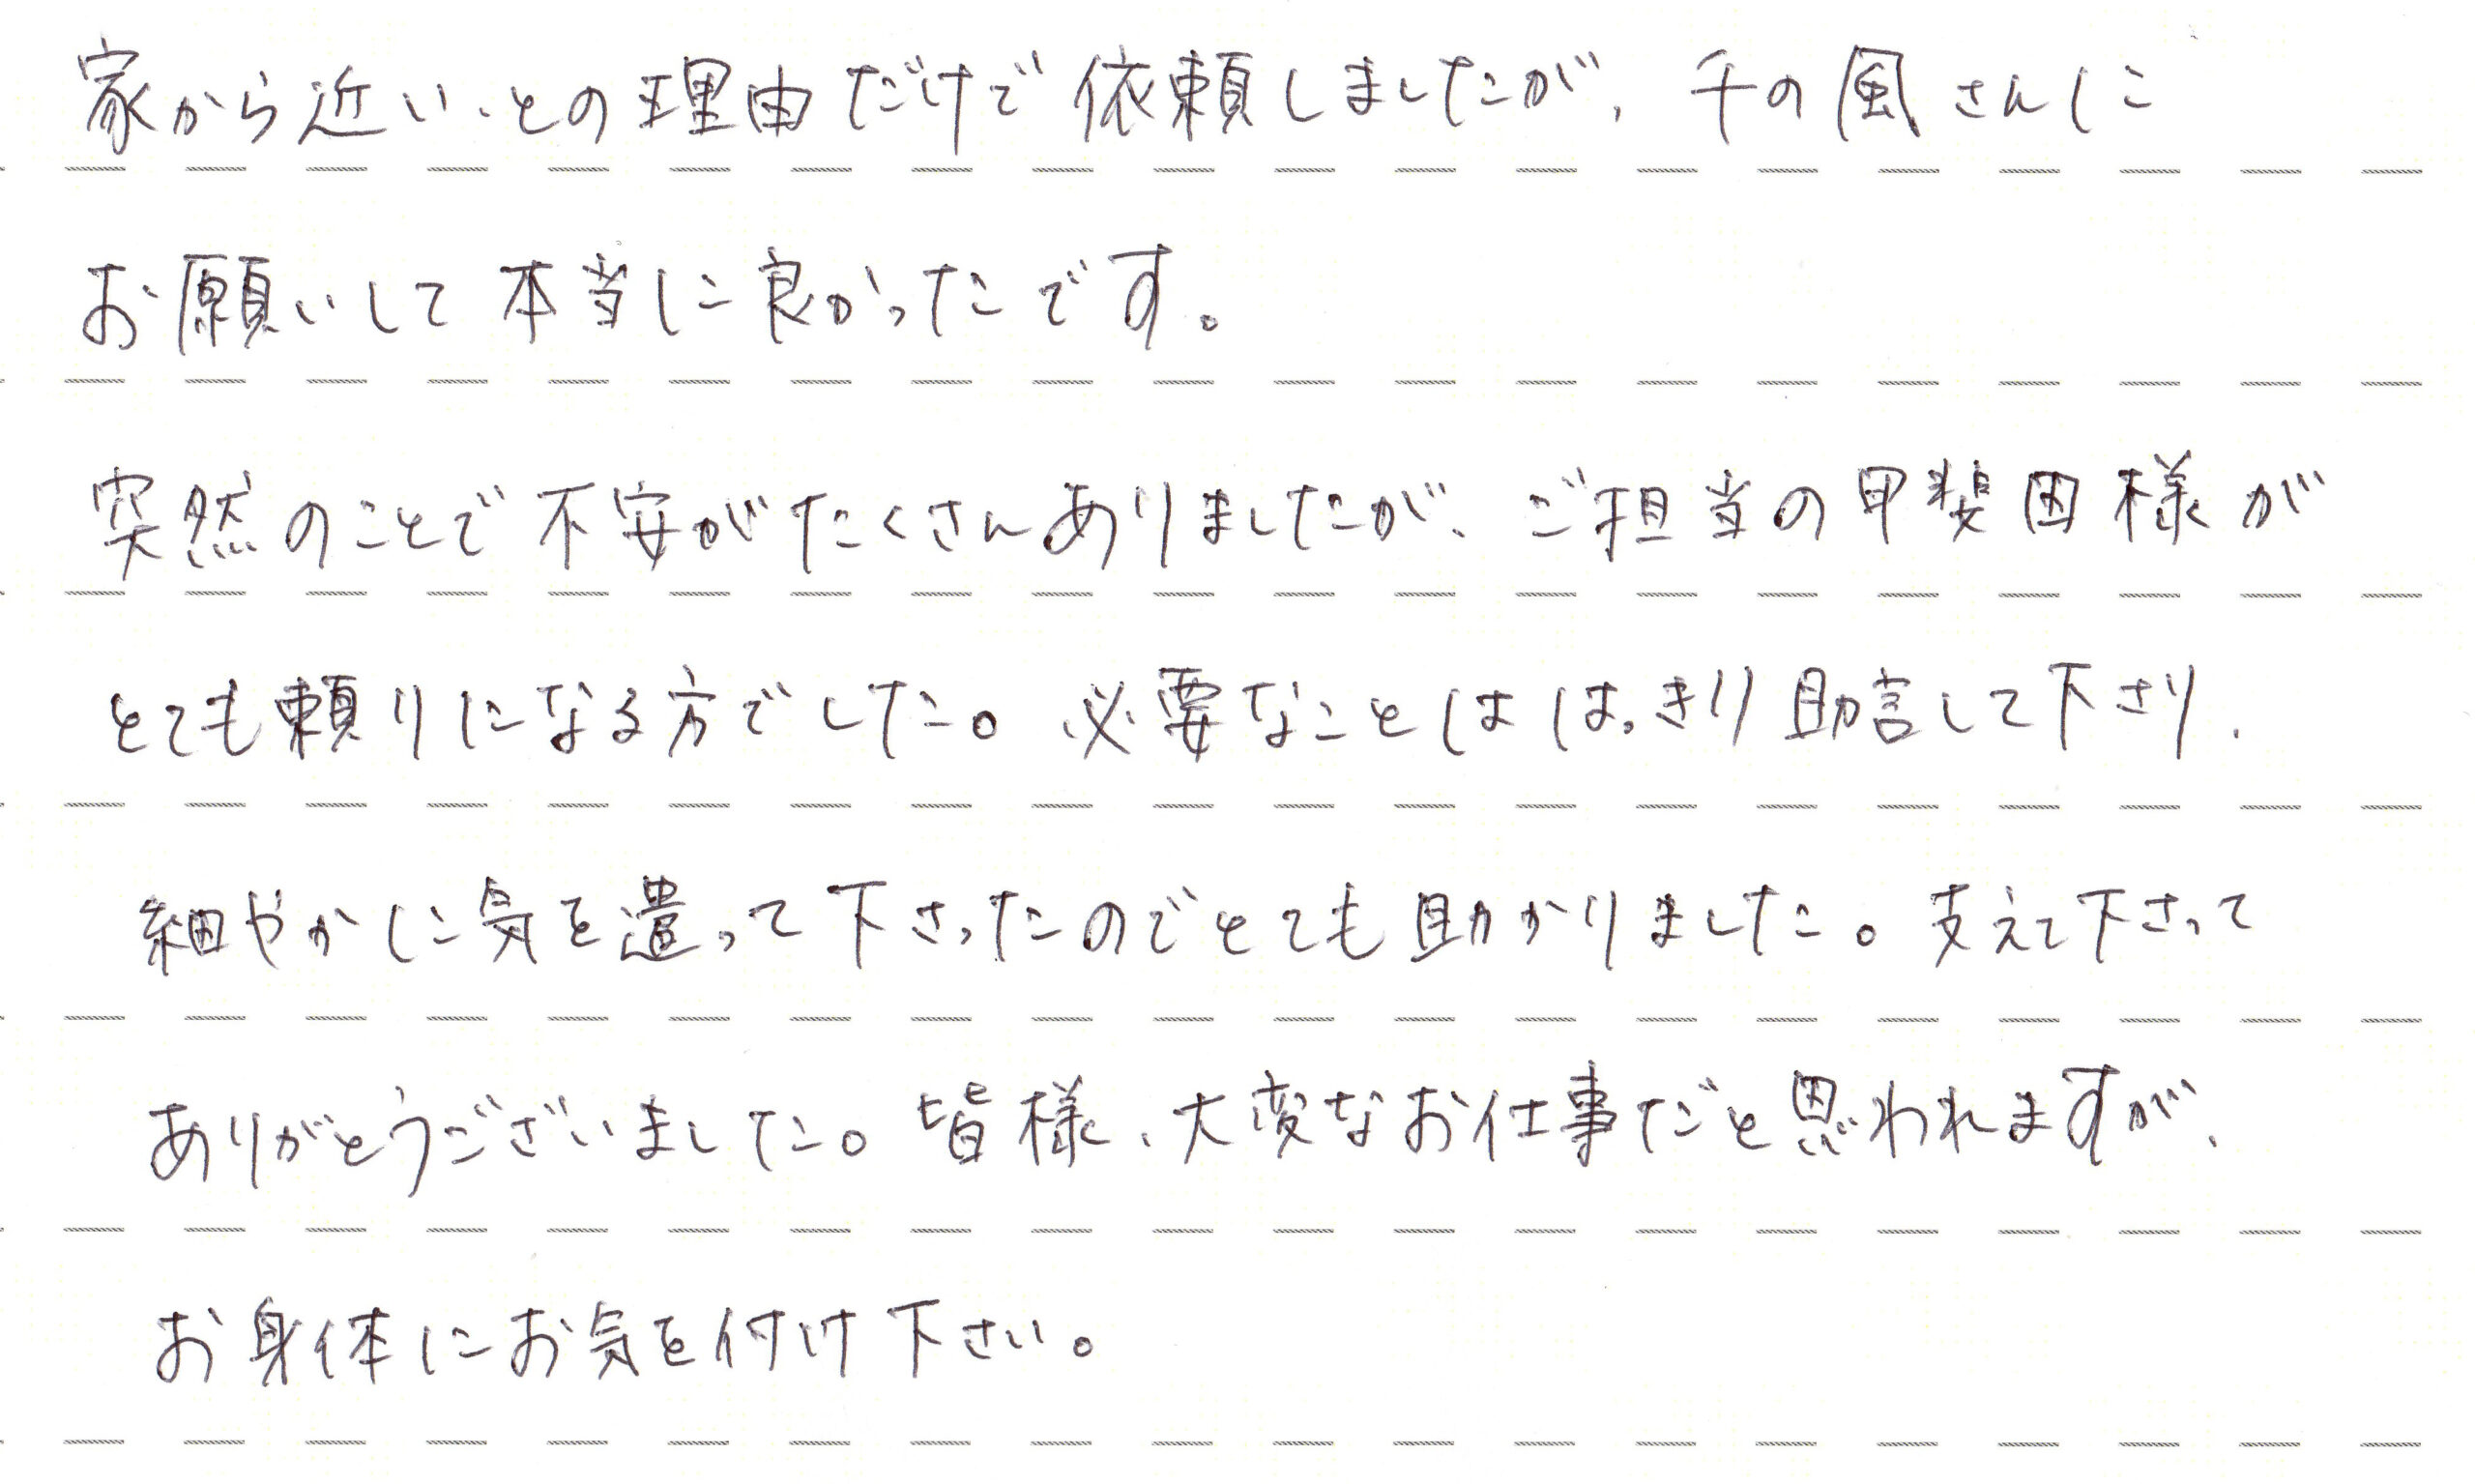 家から近いとの理由だけで依頼しましたが、千の風さんに
お願いして本当に良かったです。
突然のことで不安がたくさんありましたが、ご担当の甲斐田様が
とても頼りになる方でした。必要なことははっきり助言して下さり、
細やかに気を遣って下さったのでとても助かりました。支えて下さって
ありがとうございました。皆様、大変なお仕事だと思われますが、
お身体にお気を付け下さい。